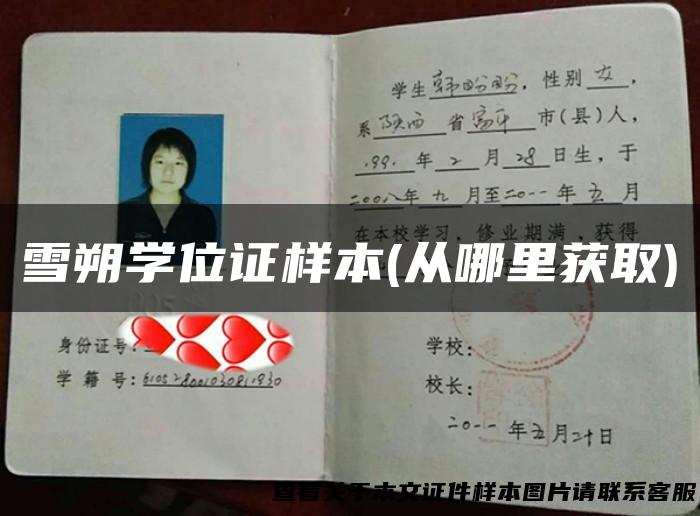 学生韩盼盼，性别女，
系陕西省富平市(县)人，
199.年2月28日生，于
二00八年九月至二0一一年五月
在本校学习，修业期满，获得
雪朔学位证样本(从哪里获取)
身份证号：
学籍号：
学校：
校长：
二0一一年五月二十日
查看关于本文证件样本图片请联系客服